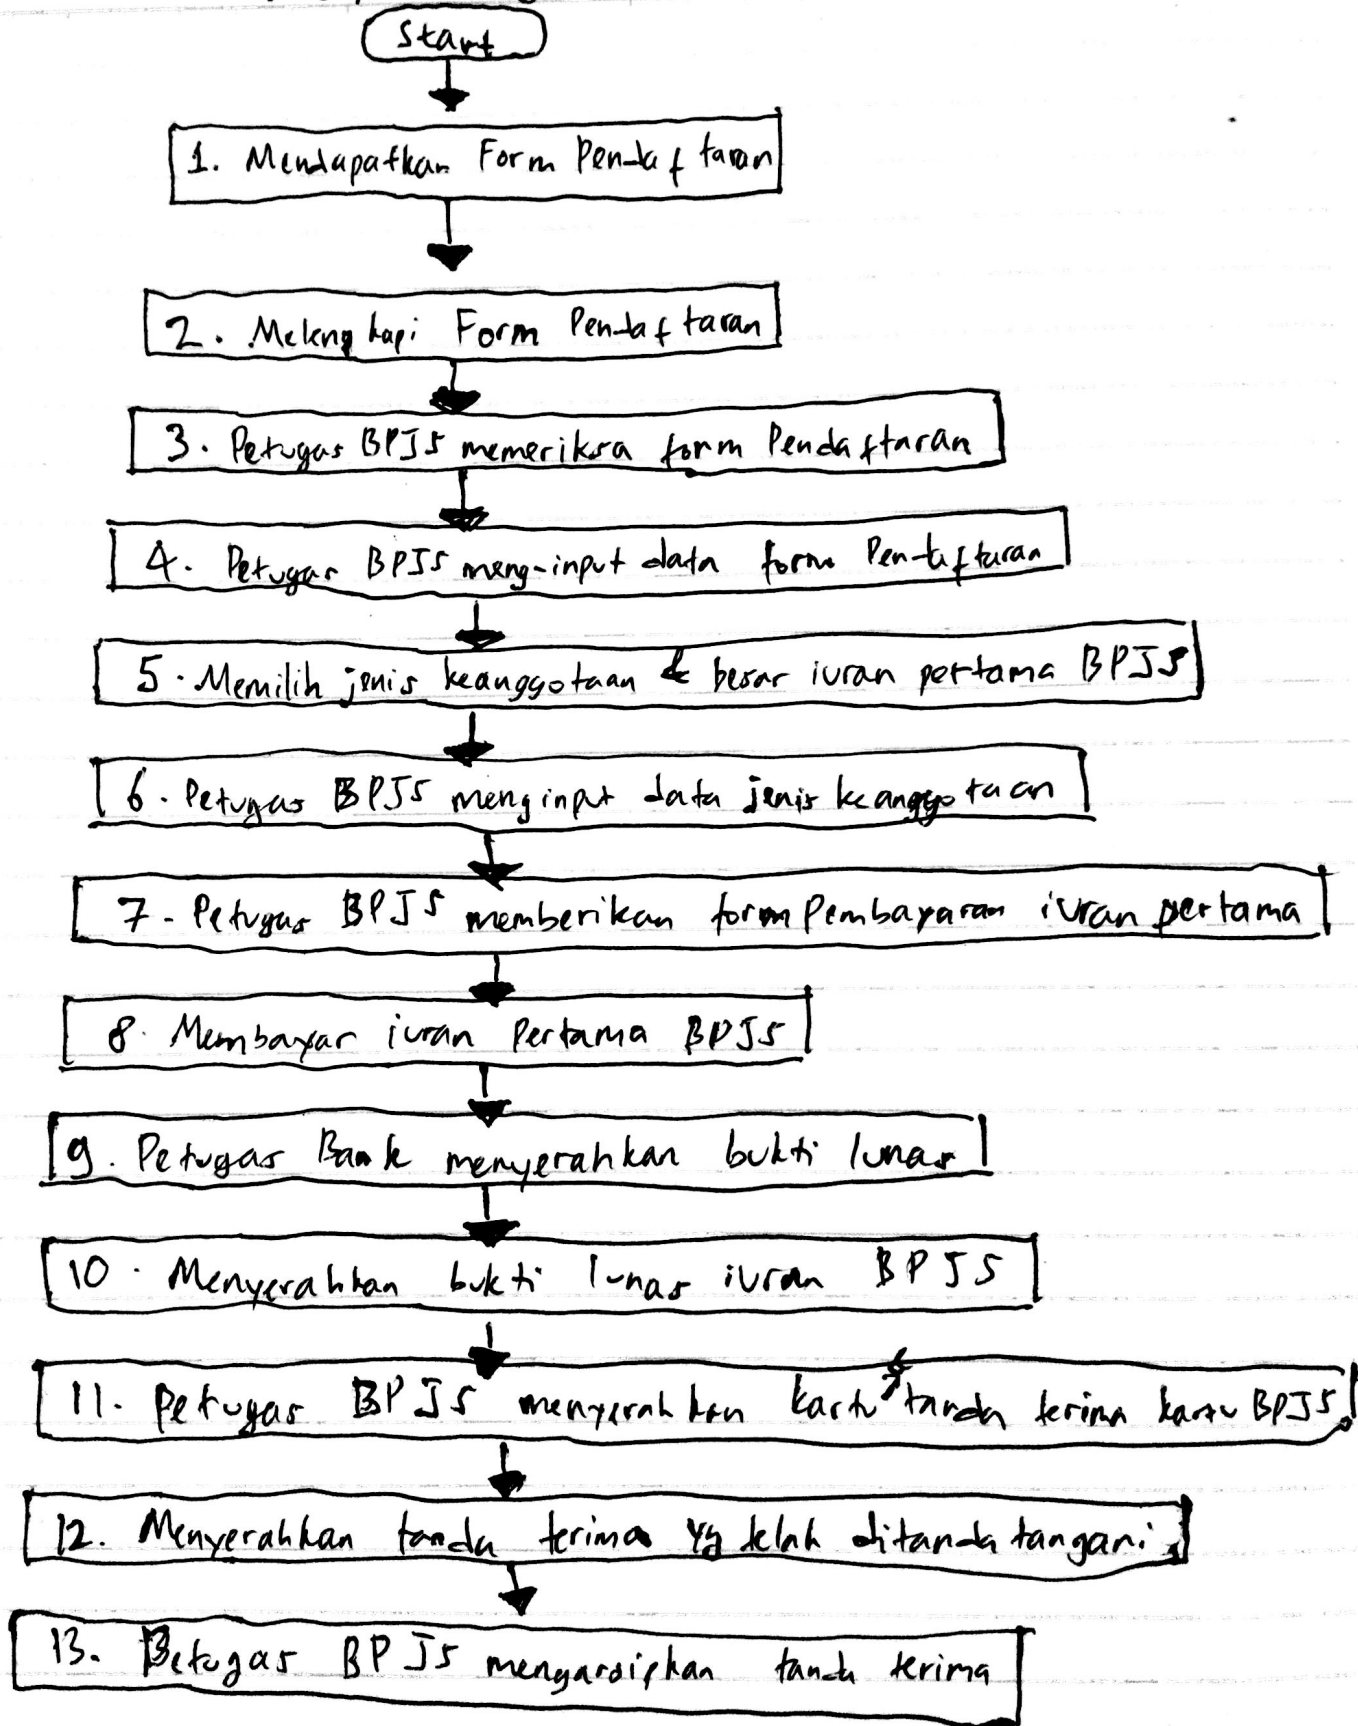 Start
1. Mendapatkan Form Pendaftaran
2. Melengkapi Form Pendaftaran
3. Petugas BPJS memeriksa form Pendaftaran
4. Petugas BPJS meng-input data form Pendaftaran
5. Memilih jenis keanggotaan & besar iuran pertama BPJS
6. Petugas BPJS menginput data jenis keanggotaan
7. Petugas BPJS memberikan form Pembayaran iuran pertama
8. Membayar iuran Pertama BPJS
9. Petugas Bank menyerahkan bukti lunas
10. Menyerahkan bukti lunas iuran BPJS
11. Petugas BPJS menyerahkan kartu & tanda terima kartu BPJS.
12. Menyerahkan tanda terima yg telah ditanda tangani.
13. Petugas BPJS mengarsipkan tanda terima